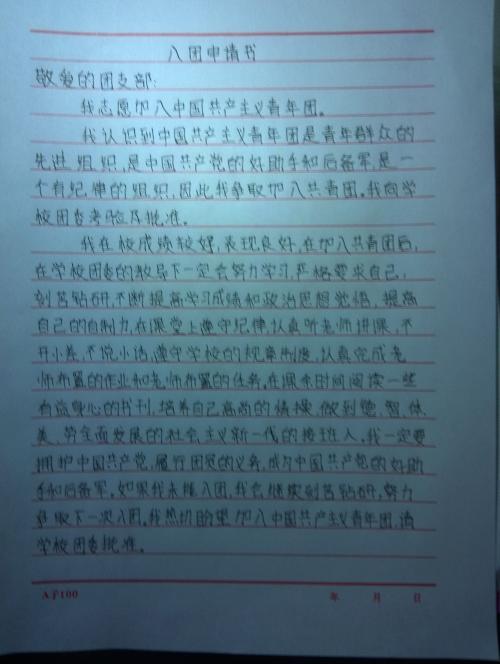 入团申请书
敬爱的团支部:
我志愿加入中国共产主义青年团。
我认识到中国共产主义青年团是青年群众的
先进组织,是中国共产党的好助手和后备军,是一
个有纪律的组织,因此我争取加入共青团。我向学
校团委考验及批准。
我在校成绩较好,表现良好,在加入共青团后,
在学校团委的教导下一定会努力学习,严格要求自己,
刻苦钻研,不断提高学习成绩和政治思想觉悟,提高
自己的自制力,在课堂上遵守纪律,认真听老师讲课,不
开小差,不说小话,遵守学校的规章制度,认真完成老
师布置的作业和老师布置的任务,在课余时间阅读一些
有益身心的书刊,培养自己高尚的情操,做到德、智、体、
美、劳全面发展的社会主义新一代的接班人。我一定要
拥护中国共产党,履行团员的义务,成为中国共产党的好助
手和后备军。如果我未能入团,我会继续刻苦钻研,努力
争取下一次入团,我热切盼望加入中国共产主义青年团,请
学校团委批准。
A子100 年 月 日